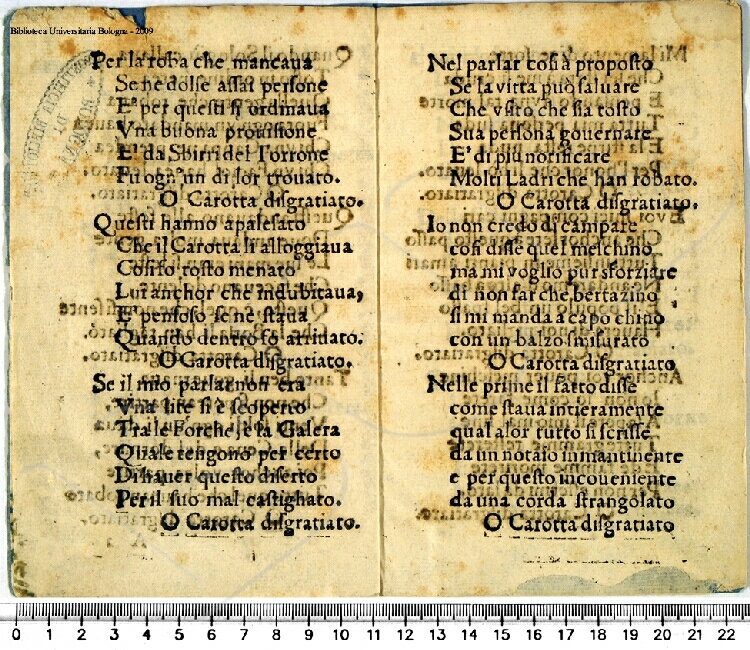 Biblioteca Universitaria Bologna - 2009
Per la roba che mancaua
Se ne dolse assai persone
E per questi si ordinaua
Vna buona prouisione
E' da Sbirri del Torrone
Fu ogn'un di lor trouato.
O Carotta disgratiato.
Questi hanno apalesato
Che il Carotta li alloggiaua
Cosi fo tosto menato
Lui anchor che indubitaua,
E' pensoso se ne staua
Quando dentro fo arriuato.
O Carotta disgratiato.
Se il mio parlar non era
Vna lite si è scoperto
Tra le Forche, e la Galera
Quale tengono per certo
Di hauer questo diserto
Per il suo mal castighato.
O Carotta disgratiato.
Nel parlar cosi à proposto
Se la vitta può saluare
Che visto che sia tosto
Sua persona gouernare
E' di più notificare
Molti Ladri che han robato.
O Carotta disgratiato.
Io non credo di campare
cosi disse quel meschino
ma mi voglio pur sforziare
di non far che bertazino
si mi manda a capo chino
con un balzo smisurato
O Carotta disgratiato
Nelle prime il fatto disse
come staua intieramente
qual alor tutto si scrisse
da un notaio inmantinente
e per questo incoueniente
da una corda strangolato
O Carotta disgratiato
0 1 2 3 4 5 6 7 8 9 10 11 12 13 14 15 16 17 18 19 20 21 22